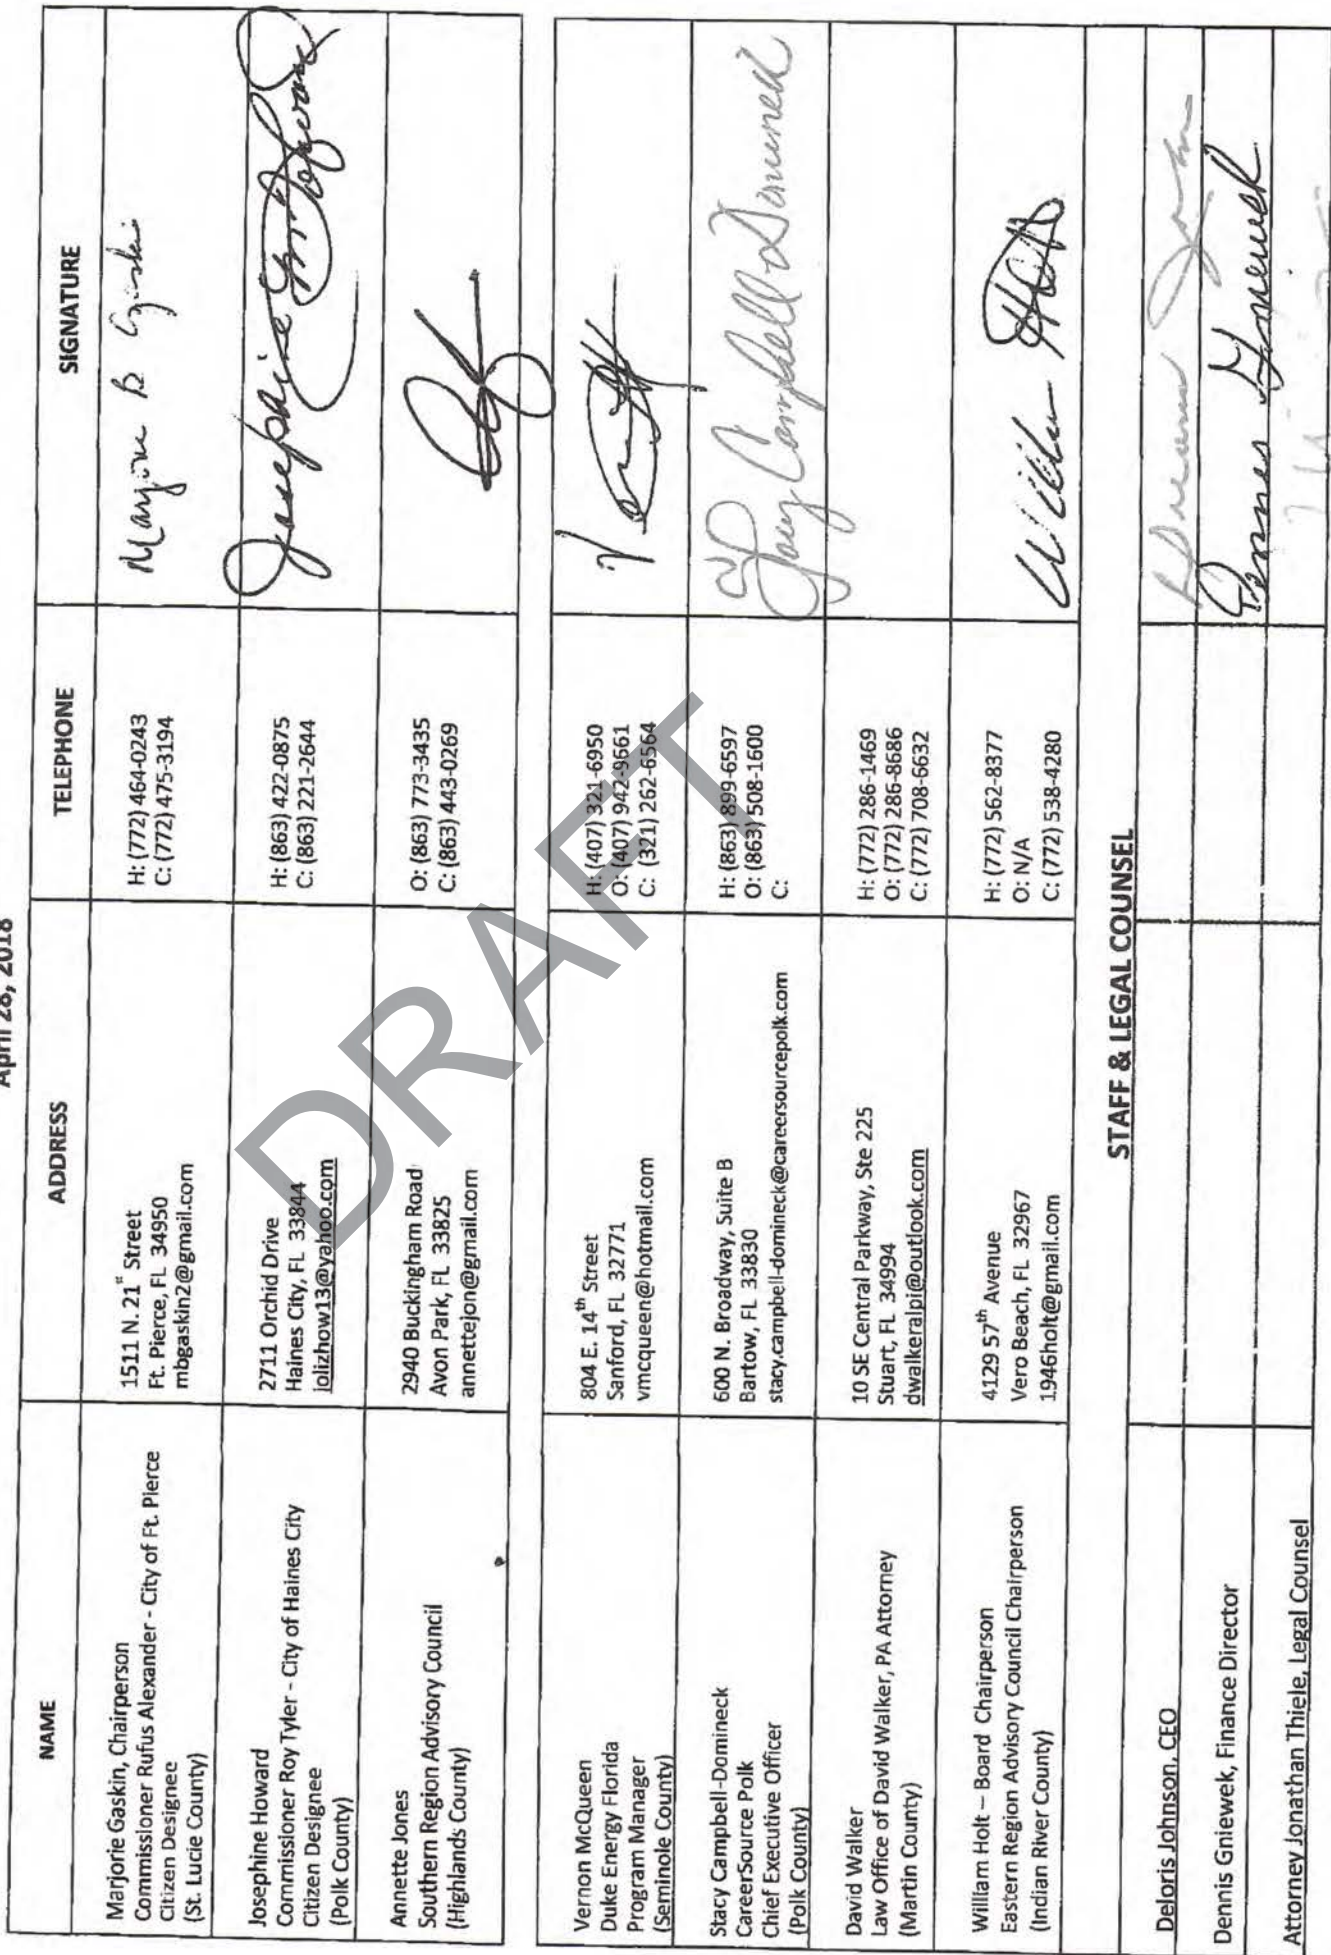 April 28, 2018
NAME
ADDRESS
TELEPHONE
SIGNATURE
Marjorie Gaskin, Chairperson
Commissioner Rufus Alexander - City of Ft. Pierce
Citizen Designee
(St. Lucie County)
1511 N. 21st Street
Ft. Pierce, FL 34950
mbgaskin2@gmail.com
H: (772) 464-0243
C: (772) 475-3194
Marjorie B Gaskin
Josephine Howard
Commissioner Roy Tyler - City of Haines City
Citizen Designee
(Polk County)
2711 Orchid Drive
Haines City, FL 33844
jolizhow13@yahoo.com
H: (863) 422-0875
C: (863) 221-2644
Josephine Howard
Annette Jones
Southern Region Advisory Council
(Highlands County)
2940 Buckingham Road
Avon Park, FL 33825
annettejon@gmail.com
O: (863) 773-3435
C: (863) 443-0269
Vernon McQueen
Duke Energy Florida
Program Manager
(Seminole County)
804 E. 14th Street
Sanford, FL 32771
vmcqueen@hotmail.com
H: (407) 321-6950
O: (407) 942-9661
C: (321) 262-6564
Stacy Campbell-Domineck
CareerSource Polk
Chief Executive Officer
(Polk County)
600 N. Broadway, Suite B
Bartow, FL 33830
stacy.campbell-domineck@careersourcepolk.com
H: (863) 899-6597
O: (863) 508-1600
C:
Stacy Campbell Domineck
David Walker
Law Office of David Walker, PA Attorney
(Martin County)
10 SE Central Parkway, Ste 225
Stuart, FL 34994
dwalkeralpi@outlook.com
H: (772) 286-1469
O: (772) 286-8686
C: (772) 708-6632
William Holt – Board Chairperson
Eastern Region Advisory Council Chairperson
(Indian River County)
4129 57th Avenue
Vero Beach, FL 32967
1946holt@gmail.com
H: (772) 562-8377
O: N/A
C: (772) 538-4280
William Holt
STAFF & LEGAL COUNSEL
Deloris Johnson, CEO
Dennis Gniewek, Finance Director
Dennis Gniewek
Attorney Jonathan Thiele, Legal Counsel
DRAFT